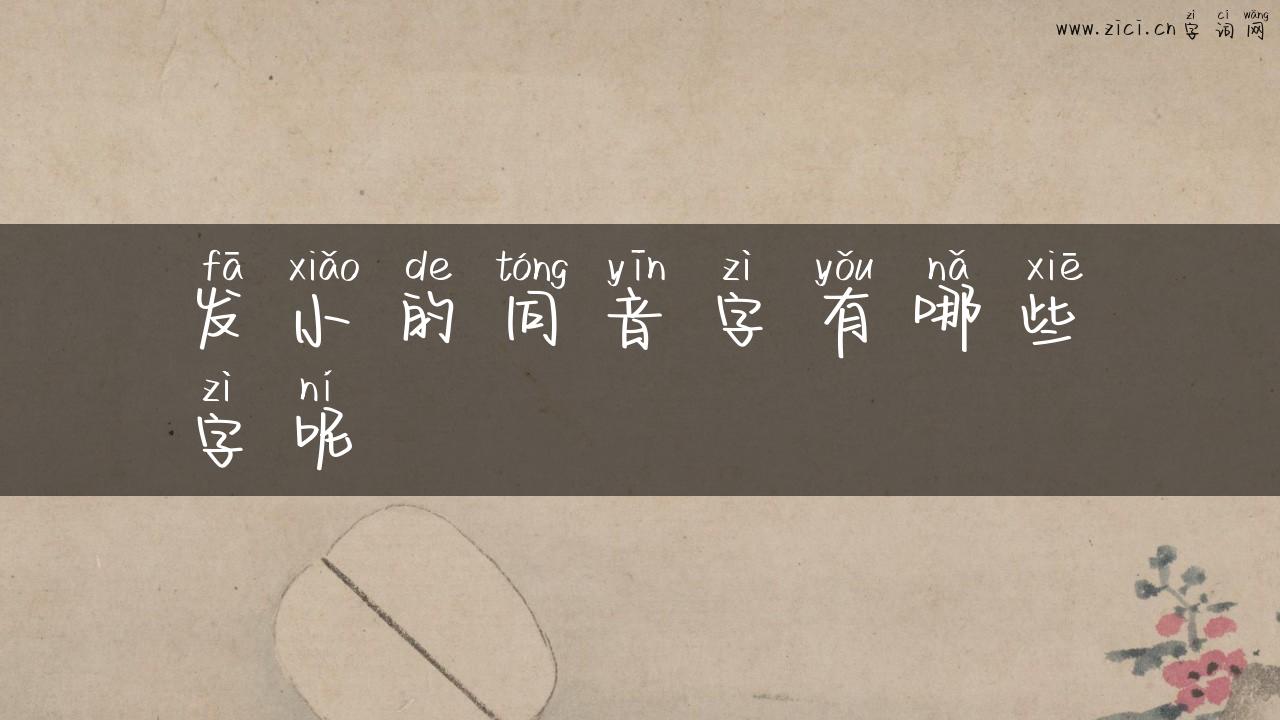 zì cí wǎng
www.zici.cn 字词网
fā xiǎo de tóng yīn zì yǒu nǎ xiē
发小的同音字有哪些
zì ní
字呢